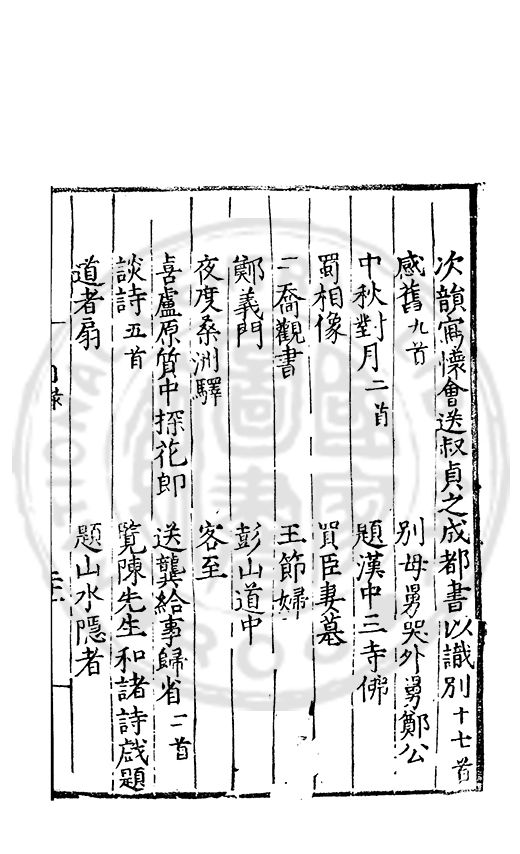 次韻寫懷會送叔貞之成都書以識別十七首
感舊九首　別母舅哭外舅鄭公
中秋對月二首　題漢中三寺佛
蜀相像　買臣妻墓
二喬觀書　王節婦
鄭義門　彭山道中
夜度桑洲驛　客至
喜盧原質中探花郎　送龔給事歸省二首
談詩五首　覽陳先生和諸詩戲題
道者扇　題山水隱者
目錄